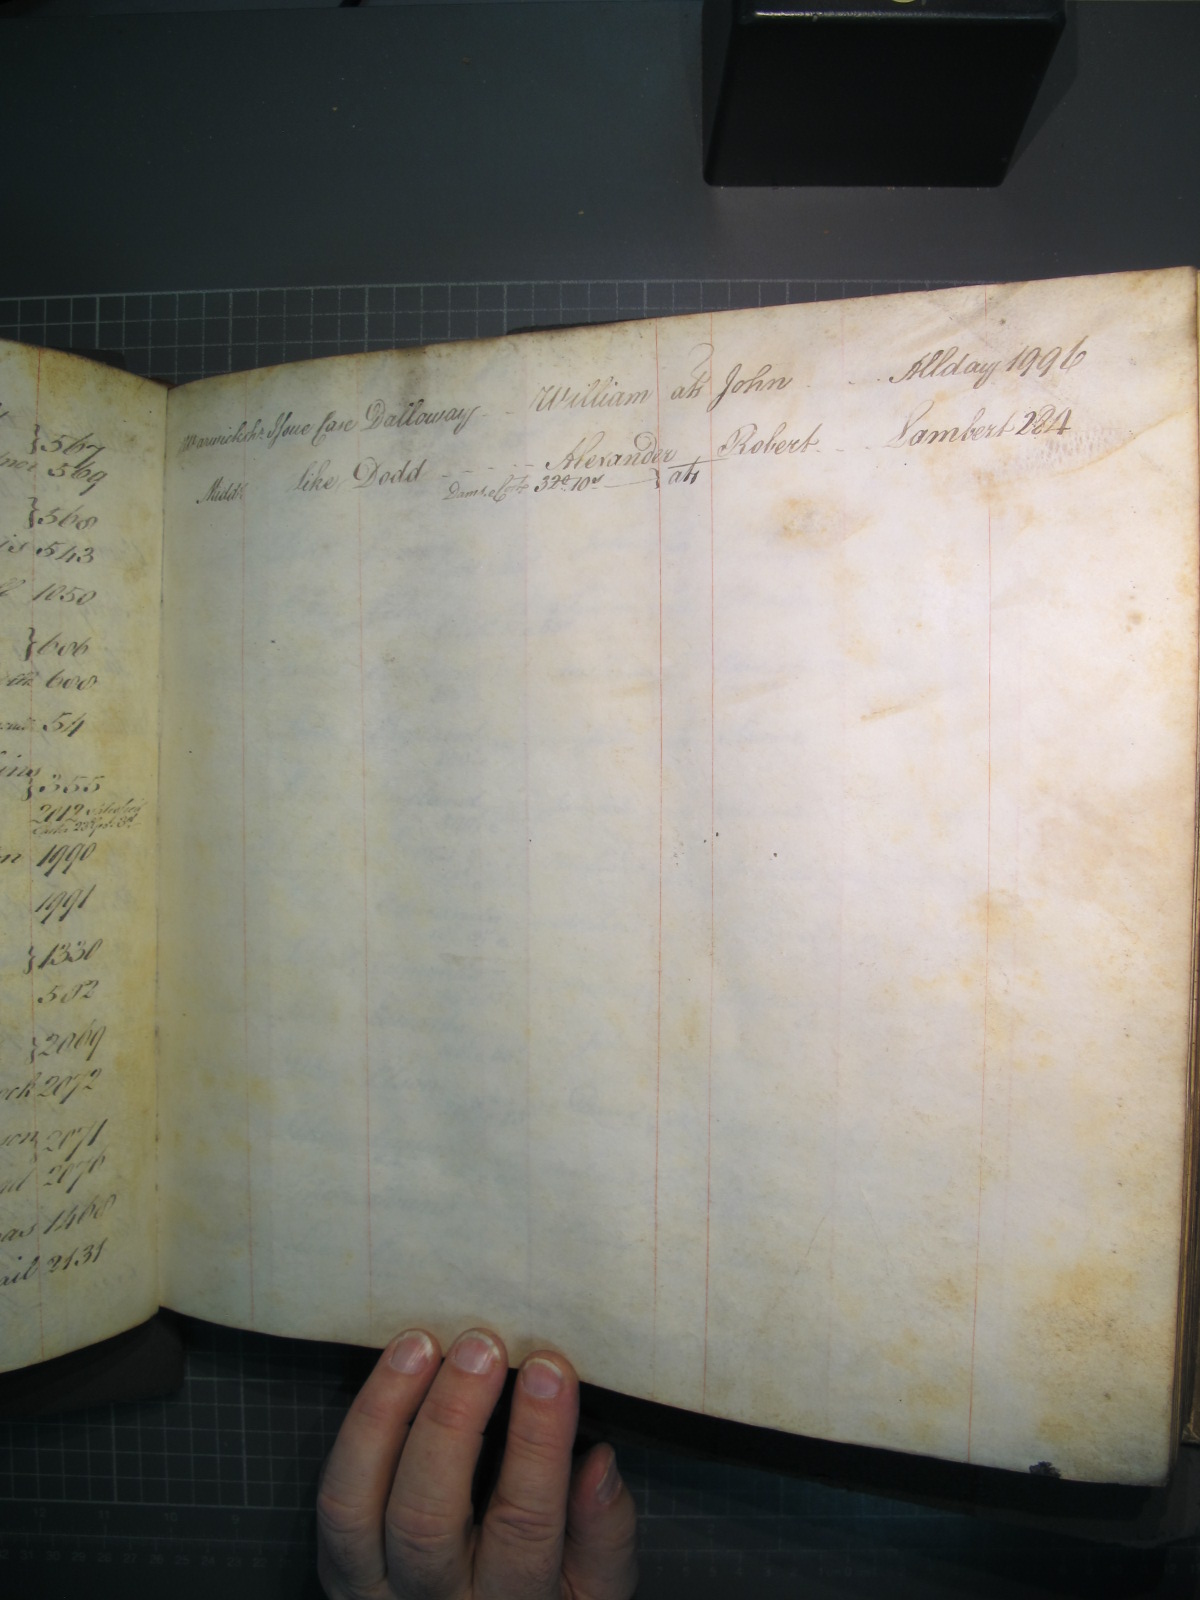 567
569
568
543
1050
606
608
54
355
2012
1990
1991
1330
582
2069
2072
2071
2076
1468
2131
Warwicksh: Issue Case Dalloway - - William ats John - - Allday 1996
Midd: like Dodd - - - - Alexander Robert - - Lambert 224
Dam: & Costs 32£ 10s } ats